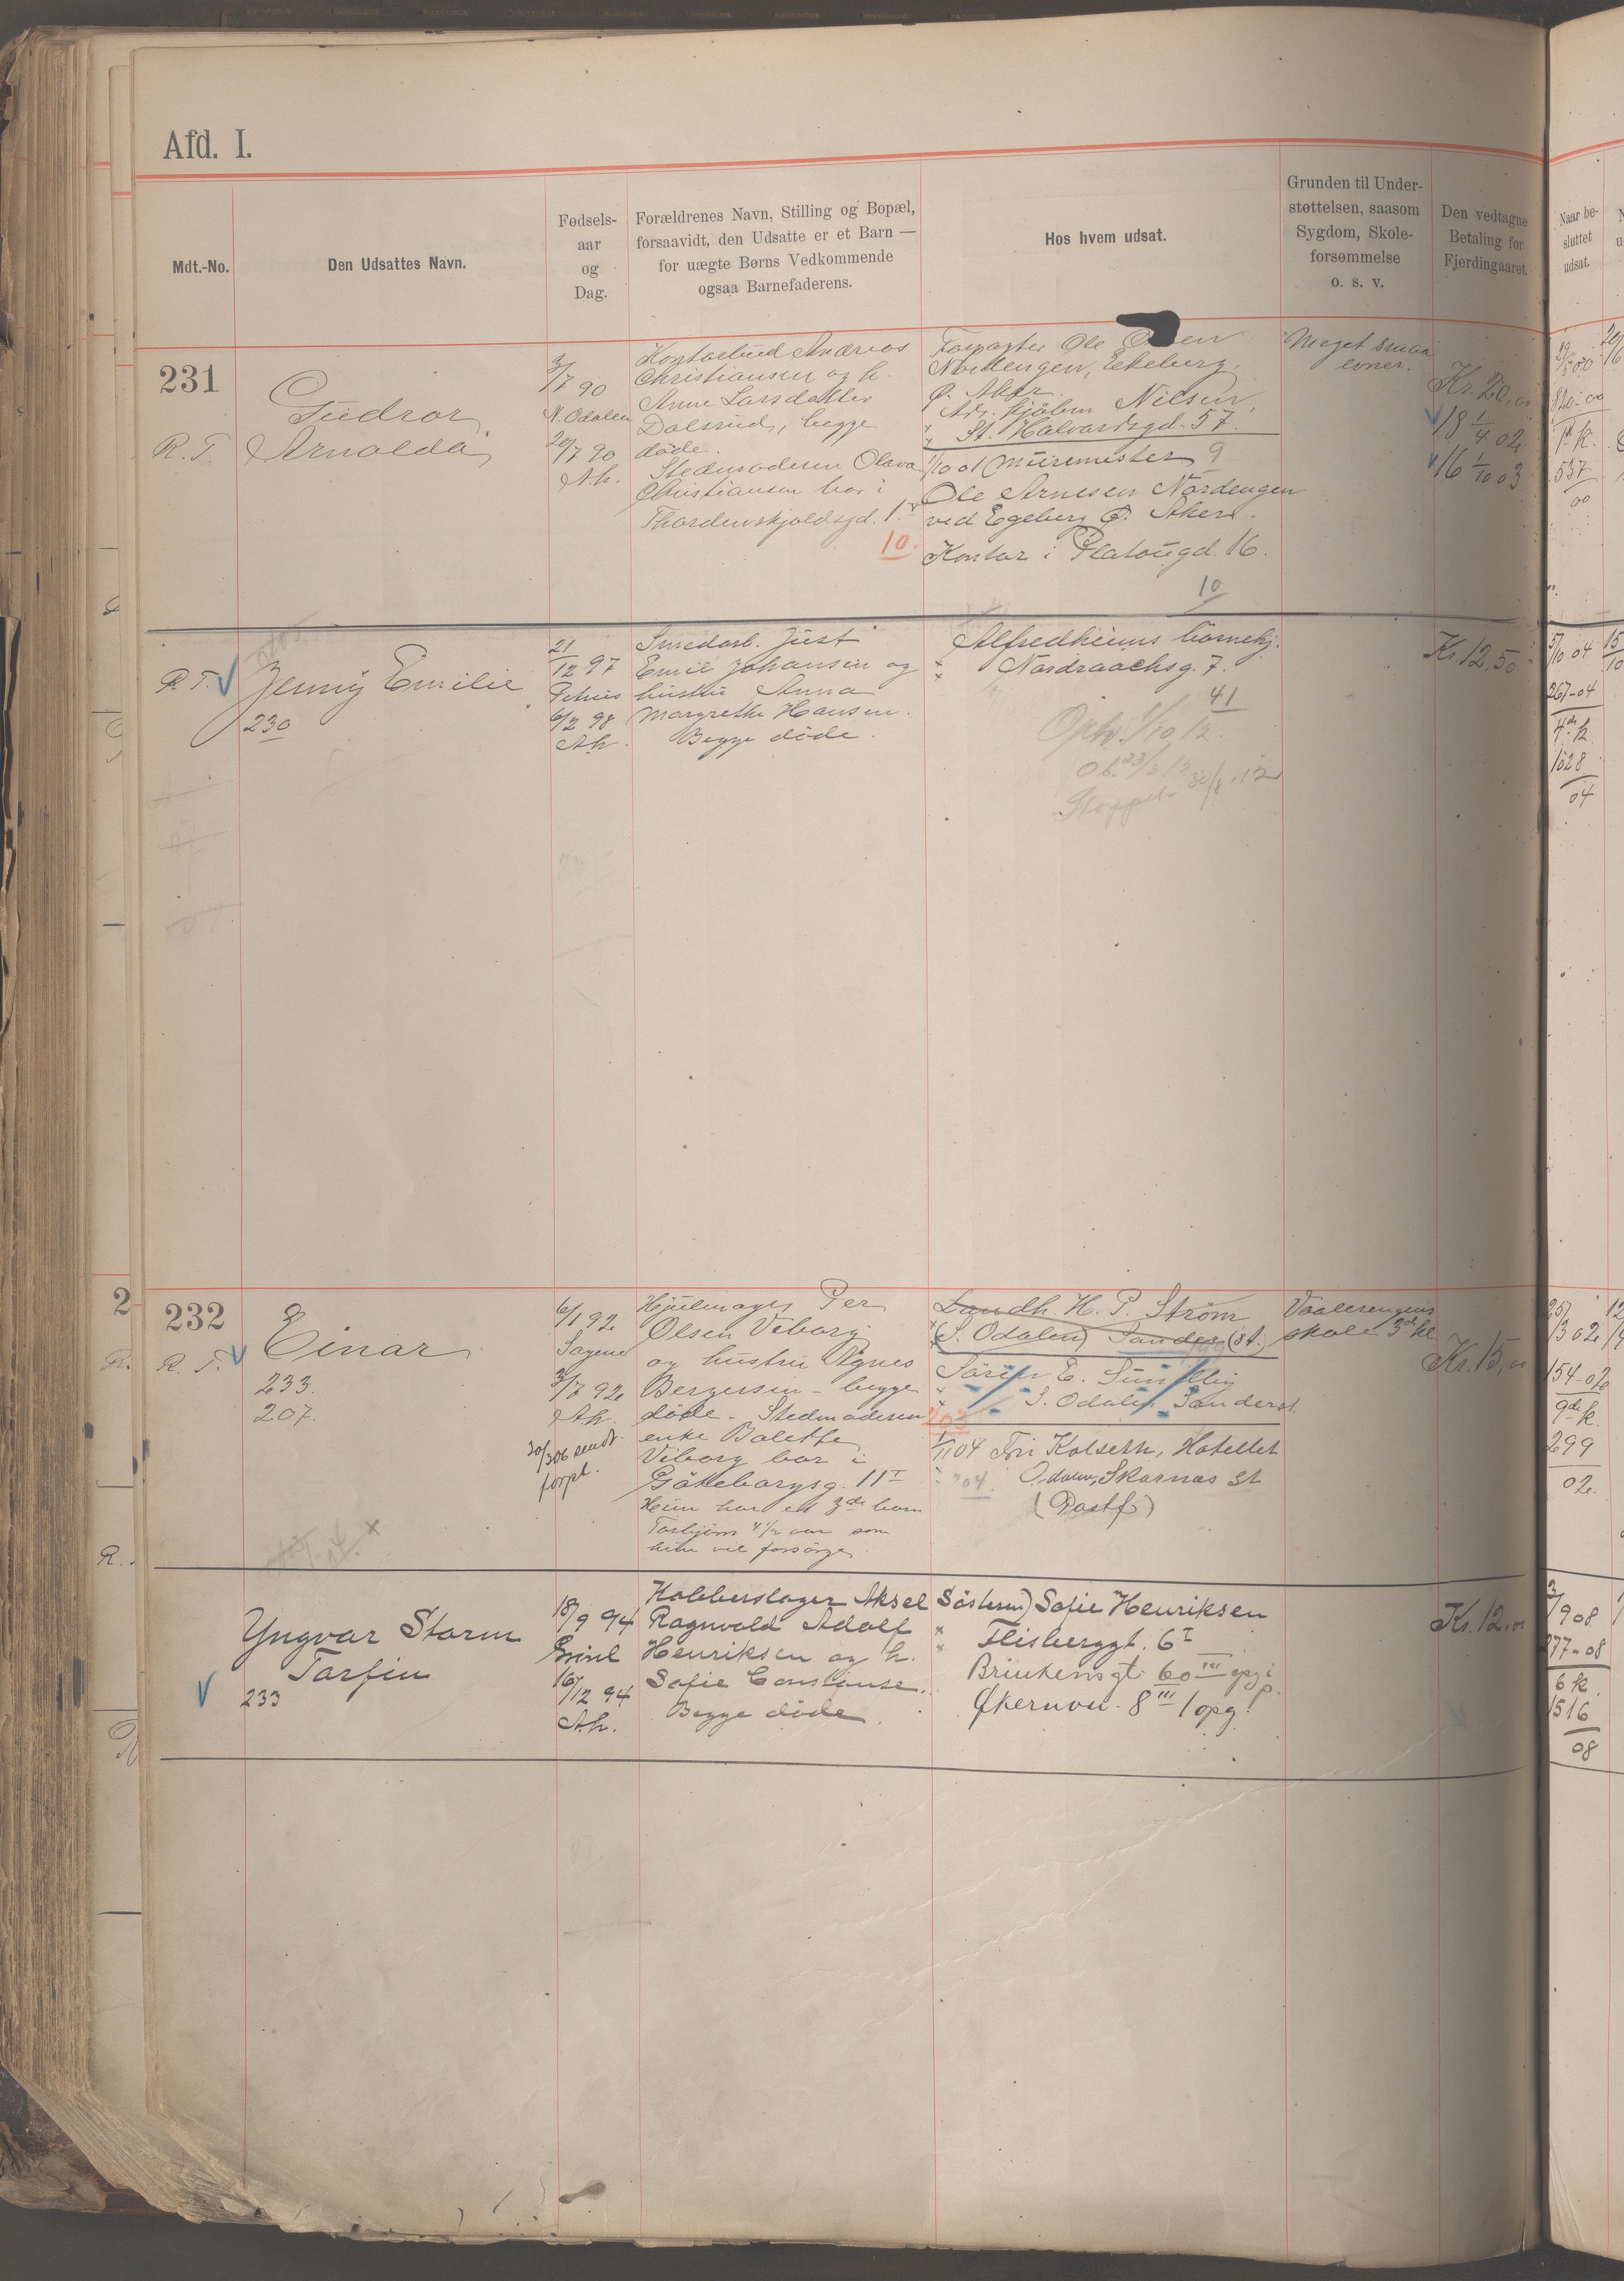 Afd. I.
Mdt.-No.
Den Udsattes Navn.
Fødsels-
aar
og
Dag.
Forældrenes Navn, Stilling og Bopæl,
forsaavidt, den Udsatte er et Barn —
for uægte Børns Vedkommende
ogsaa Barnefaderens.
Hos hvem udsat.
Grunden til Under-
støttelsen, saasom
Sygdom, Skole-
forsømmelse
o. s. v.
Den vedtagne
Betaling for
Fjerdingaaret.
Naar be-
sluttet
udsat.
231
R. T.
Gudror
Arnolda
3/7 90
N. Odalen
20/7 90
A.h.
Kontorbud Andreas
Christiansen og h.
Anne Larsdatter
Dalsrud, begge
døde.
Stedmoderen Olava
Christiansen bor i
Thordenskjoldsgd. 1
10.
Forpagter Ole
Nordengen, Ekeberg,
Ø. Aker.
Adr. Kjøbm Nilsen,
St. Halvardsgd. 57.
1/10 01 Muremester 9
Ole Arnesen Nordengen
ved Egeberg Ø. Aker.
Kontor i Platougd. 16.
10
Meget smaa
evner.
Kr. 20,00
18 1/4 02
16 1/10 03
R. T.
Jenny Emilie
230
21/12 97
Petrus
6/2 98
A.h.
Smedarb. Just
Emil Johansen og
hustru Anna
Margrethe Hansen.
Begge døde.
Alfredheims barnehj.
Nordraachsg. 7.
41
Oph 1/10 12
Stoppet 30/8 12
Kr. 12,50
5/10 04
267-04
4de k
1028
04
232
R. T.
Einar
233.
207.
6/1 92
Sagene
3/7 92
A.h.
30/3 06 sendt
forpl.
Hjulmager Per
Olsen Viborg
og hustru Agnes
Bergersen - begge
døde. Stedmoderen
enke Bolette
Viborg bor i
Göteborgsg. 11 I
Hun har et 3de barn
Torbjørn 4 1/2 aar som
hun vil forsørge.
Landh. H. P. Strøm
(S. Odalen) Sander (st.)
Søren E.
S. Odalen Sander st.
203
1/11 04 Fru Kolseth, Hotellet
Odalen, Skarnæs st
(Postf)
Vaalerengens
skole 3de kl
Kr. 15,00
25/3 02
154-02
9de k
299
02.
Yngvar Storm
Torfin
233
18/9 94
16/12 94
A.h.
Kobberslager Aksel
Ragnvald Adolf
Henriksen og h.
Sofie Constanse.
Begge døde.
Søsteren) Sofie Henriksen
Flisberggt. 6 I
Brinkensgt. 60 III opg i
Økernvei. 8 III 1 opg.
Kr. 12,00
3/9 08
277-08
6 k.
1516
08